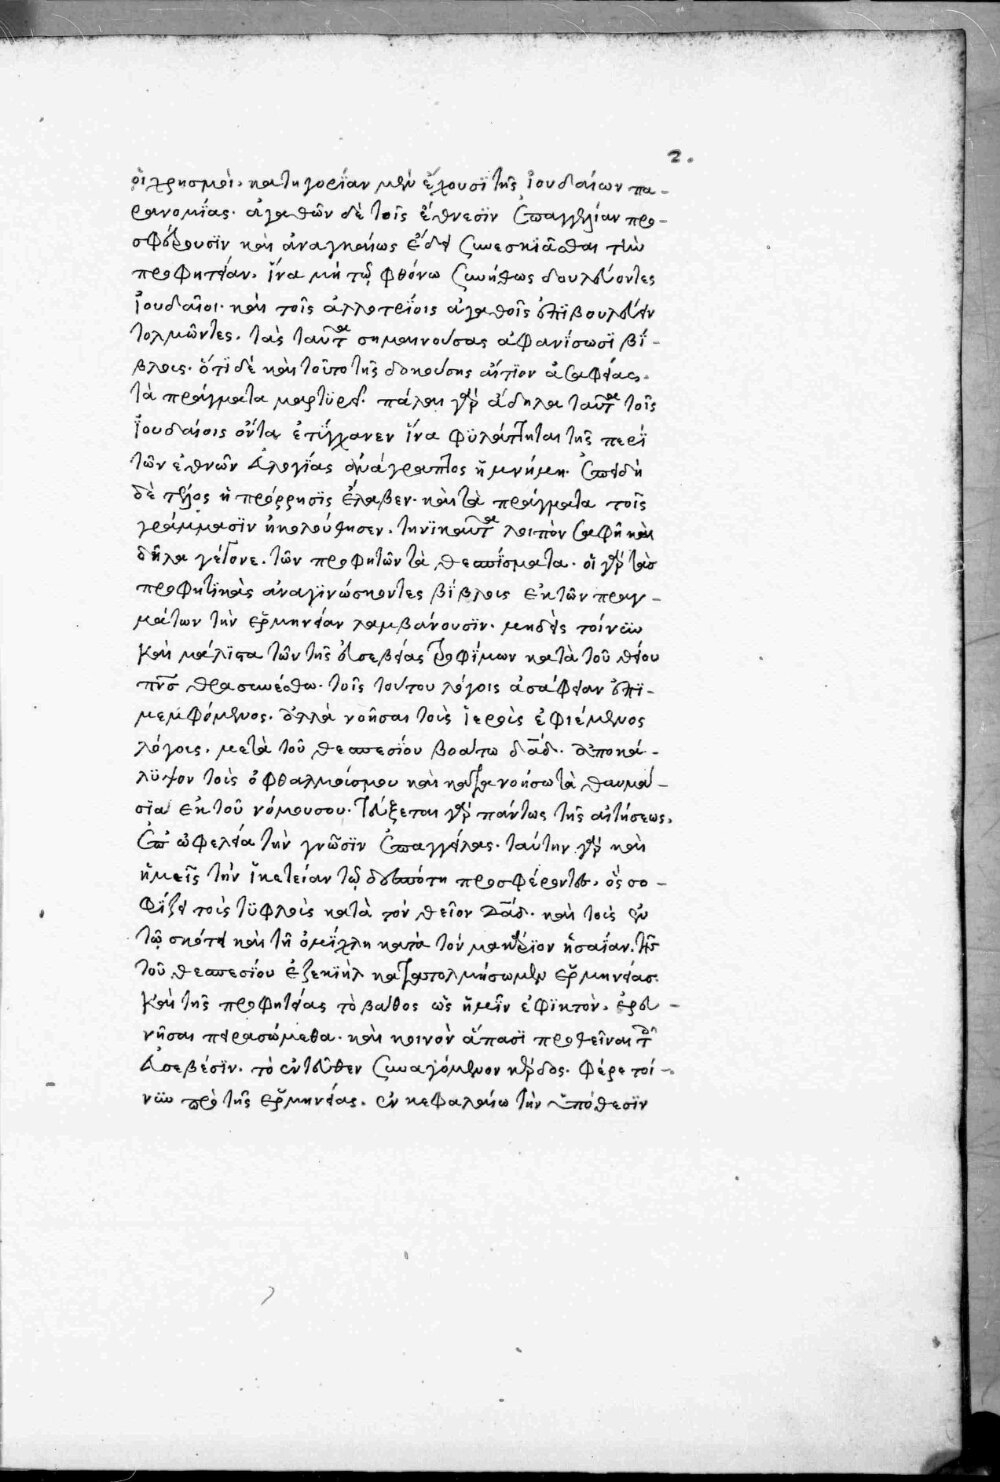 2.
οἱ χρησμοὶ· κατηγορΐαν μὲν ἔχουσϊ τῆς ϊουδαίων πα-
ρανομΐας· ἀγαθῶν δὲ τοῖς ἔθνεσϊν ἐπαγγελίαν προ-
σφέρουσϊν καὶ ἀναγκαίως ἔδει συνεσκιᾶσθαι τὴν
προφητείαν· ἵνα μὴ τῷ φθόνω συνήθως δουλεύοντες
ϊουδαῖοι· καὶ τοῖς ἀλλοτρΐοις ἀγαθοῖς ἐπιβουλεύειν
τολμῶντες· τὰς ταῦτα σημαινούσας ἀφανΐσωσϊ βΐ-
βλους· ὅτϊ δὲ καὶ τοῦτο τῆς δοκούσης αἴτϊον ἀσαφείας·
τὰ πράγματα μαρτϋρεῖ· πάλαι γὰρ ἄδηλα ταῦτα τοῖς
ϊουδαίοις ὄντα ἐτύγχανεν ἵνα φϋλάττηται τῆς περὶ
τῶν ἐθνῶν εὐλογίας ἀνάγραπτος ἡ μνήμη· ἐπειδὴ
δὲ τέλος ἡ πρόρρησϊς ἔλαβεν· καὶ τὰ πράγματα τοῖς
γράμμασϊν ἠκολούθησεν· τηνϊκαῦτα λοιπὸν σαφῆ καὶ
δῆλα γέγονε· τῶν προφητῶν τὰ θεσπΐσματα· οἱ γὰρ τὰσ
προφητϊκὰς ἀναγϊνώσκοντες βΐβλους ἐκ τῶν πραγ-
μάτων τὴν ἑρμηνείαν λαμβάνουσϊν· μηδεὶς τοίνυν
καὶ μάλϊστα τῶν τῆς εὐσεβείας τροφΐμων κατὰ τοῦ θείου
πνσ θρασυνέσθω· τοῖς τούτου λόγοις ἀσάφειαν ἐπϊ-
μεμφόμενος· ἀλλὰ νοῆσαι τοὺς ϊεροὺς ἐφιέμενος
λόγους· μετὰ τοῦ θεσπεσίου βοάτω δαδ· ἀποκά-
λϋψον τοὺς ὀφθαλμούσμου καὶ κατανοήσω τὰ θαυμά-
σϊα ἐκ τοῦ νόμουσου· τεύξεται γὰρ πάντως τῆς αἰτήσεως·
ἐπ ὠφελεία τὴν γνῶσϊν ἐπαγγείλας· ταύτην γὰρ καὶ
ἡμεῖς τὴν ϊκετείαν τῷ δεσπότη προσφέροντες· ὃς σο-
φίζει τοὺς τϋφλοὺς κατὰ τὸν θεῖον δαδ· καὶ τοὺς ἐν
τῷ σκότει καὶ τῆ ὁμΐχλη κατὰ τὸν μακάριον ἡσαΐαν· τῆς
τοῦ θεσπεσίου ἐζεκιὴλ κατατολμήσωμεν ἑρμηνείασ·
καὶ τῆς προφητείας τὸ βάθος ὡς ἡμῖν ἐφϊκτὸν· ἐρευ-
νῆσαι πειρασώμεθα· καὶ κοινὸν ἅπασϊ προθεῖναι τοῖς
εὐσεβέσϊν· τὸ ἐντεῦθεν συναγόμενον κέρδος· φέρε τοί-
νυν πρὸ τῆς ἑρμηνείας· ἐν κεφαλαίω τὴν ὑπόθεσϊν